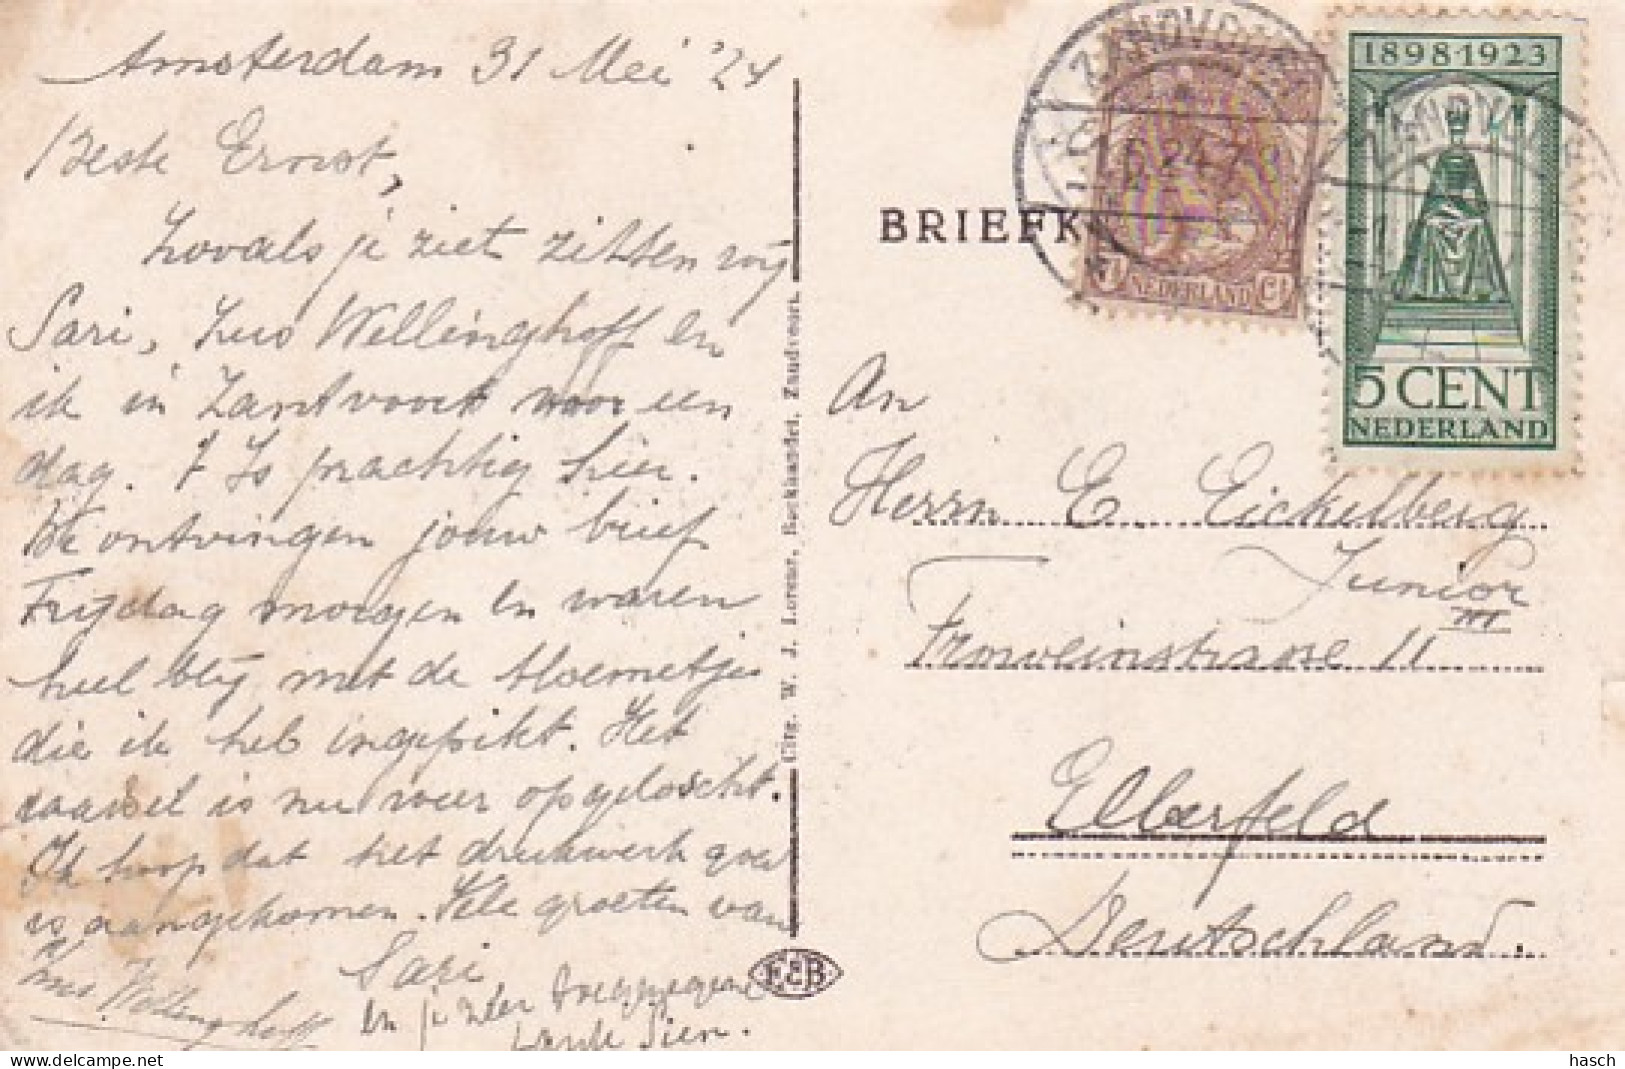 Amsterdam 31 Mei '24
Beste Ernst,
Zooals je ziet zitten wij
Sari, Zus Wellinghoff en
ik in Zantvoort voor een
dag. 't Is prachtig hier.
We ontvingen jouw brief
Frijdag morgen en waren
heel blij met de bloemetjes
die ik heb ingepikt. Het
raadsel is nu weer opgelöscht.
Ik hoop dat het drukwerk goed
is aangekomen. Vele groeten van
Sari
Zus Wellinghoff
en je zeer toegenegene
tante Sien.
Uitg. W. J. Lorenz, Boekhandel, Zandvoort.
E&B
BRIEFK
ZANDVOORT
24.7
NEDERLAND
ZANDVOORT
1898·1923
5 CENT
NEDERLAND
An
Herrn E. Eickelberg
Junior
III
Froweinstrasse 11
Elberfeld
Deutschland.
hasch